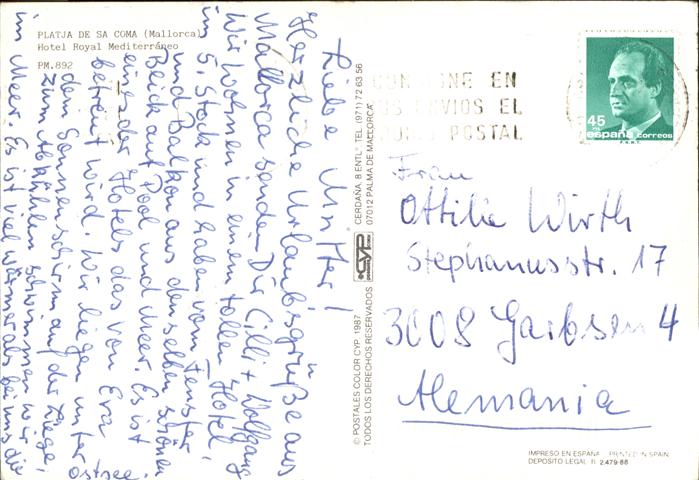 PLATJA DE SA COMA (Mallorca)
Hotel Royal Mediterráneo
PM.892
Liebe Mutter!
Herzliche Urlaubsgrüße aus
Mallorca senden Dir Cilli + Wolfgang
Wir wohnen in einem tollen Hotel
im 5. Stock und haben vom Fenster
und Balkon aus denselben schönen
Blick auf Pool und Meer. Es ist
eines der Hotels das von Eva
betreut wird. Wir liegen unter
dem Sonnenschirm auf der Liege,
zum Abkühlen schwimmen wir
im Meer. Es ist viel wärmer als bei uns die
Ostsee
© POSTALES COLOR CYP, 1987
TODOS LOS DERECHOS RESERVADOS
CYP
CERDAÑA, 8 ENTL° TEL. (971) 72 63 56
07012 PALMA DE MALLORCA
EN
ENVIOS EL
POSTAL
45
PTS
españa correos
F.N.M.T.
Frau
Ottilie Wirth
Stephanusstr. 17
3008 Garbsen 4
Alemania
IMPRESO EN ESPAÑA - PRINTED IN SPAIN
DEPOSITO LEGAL B. 2.479-88